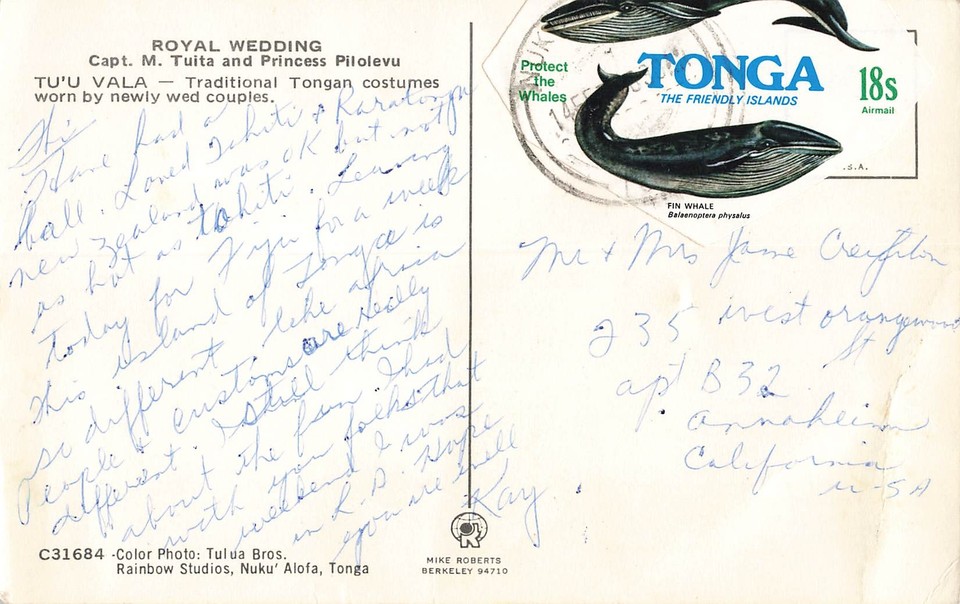 ROYAL WEDDING
Capt. M. Tuita and Princess Pilolevu
TU'U VALA — Traditional Tongan costumes
worn by newly wed couples.
Hi
Have had a
ball. Loved Tahiti & Raratonga
new Zealand was OK but not
as hot as tahiti. Leaving
today for Fiji for a week
This island of Tonga is
so different. like africa
People & customs are really
different. I still think
about the fun I had
with you folks that
weekend I was
in L.A. Hope
you are well
Kay
C31684 -Color Photo: Tulua Bros.
Rainbow Studios, Nuku' Alofa, Tonga
MIKE ROBERTS
BERKELEY 94710
Protect
the
Whales
TONGA
'THE FRIENDLY ISLANDS
18s
Airmail
.S.A.
FIN WHALE
Balaenoptera physalus
Mr & Mrs Creighton
235 west orangewood
St
apt B32
annaheim
California
U-SA